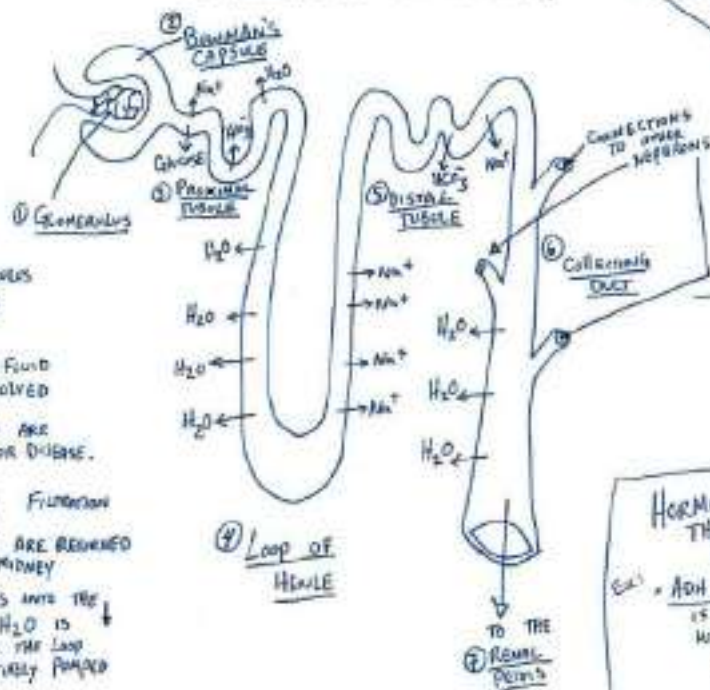 ② BOWMAN'S
CAPSULE
Na⁺
H₂O
GLUCOSE
③ PROXIMAL
TUBULE
① GLOMERULUS
⑤ DISTAL
TUBULE
HCO₃⁻
Na⁺
CONNECTIONS
TO OTHER
NEPHRONS
⑥ COLLECTING
DUCT
H₂O
H₂O
H₂O
H₂O
Na⁺
Na⁺
Na⁺
Na⁺
H₂O
H₂O
H₂O
④ LOOP OF
HENLE
TO THE
⑦ RENAL
PELVIS
FLUID
OLVED
ARE
OR DISEASE.
FILTRATION
ARE RETURNED
KIDNEY
S INTO THE ↓
H₂O IS
THE LOOP
PUMPED
HORM
TH
• ADH
IS